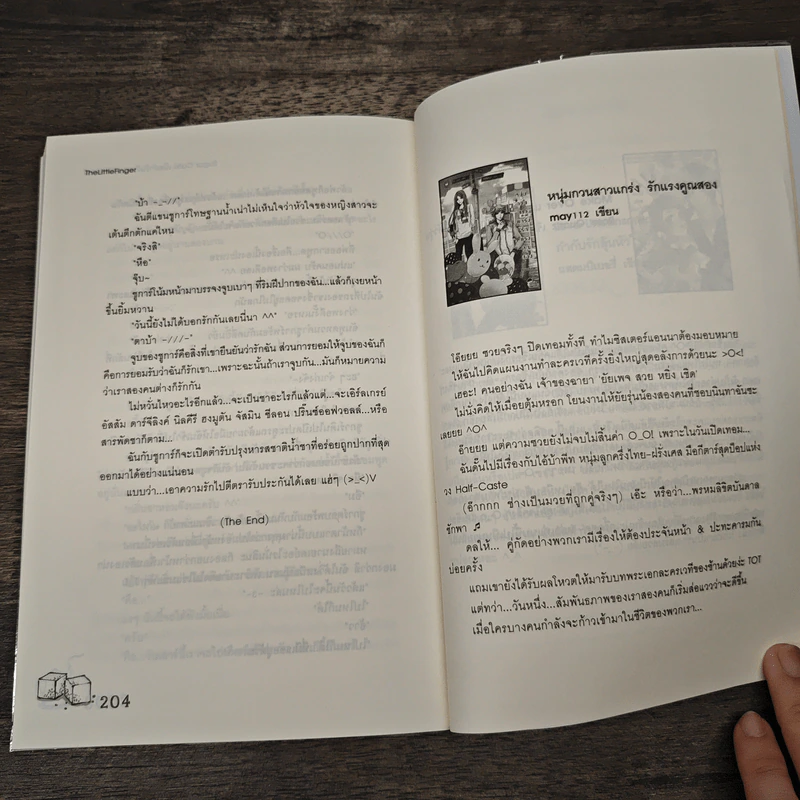 TheLittleFinger
"บ้า -_-//"
ฉันตีแขนชูการ์โทษฐานน้ำเน่าไม่เห็นใจว่าหัวใจของหญิงสาวจะ
เต้นตึกตักแค่ไหน
"จริงสิ"
"หือ"
จุ๊บ~
ชูการ์โน้มหน้ามาบรรจงจูบเบาๆ ที่ริมฝีปากของฉัน...แล้วก็เงยหน้า
ขึ้นยิ้มหวาน
"วันนี้ยังไม่ได้บอกรักกันเลยนี่นา ^^"
"ตาบ้า -///-"
จูบของชูการ์คือสิ่งที่เขายืนยันว่ารักฉัน ส่วนการยอมให้จูบของฉันก็
คือการยอมรับว่าฉันก็รักเขา...เพราะฉะนั้นถ้าเราจูบกัน...มันก็หมายความ
ว่าเราสองคนต่างก็รักกัน
ไม่หวั่นไหวอะไรอีกแล้ว...จะเป็นชาอะไรก็แล้วแต่...จะเอิร์ลเกรย์
อัสสัม ดาร์จีลิงค์ นิลคีรี ฮงมูตัน จัสมิน ซีลอน ปริ๊นซ์ออฟวอลล์...หรือ
สารพัดชาก็ตาม...
ฉันกับชูการ์ก็จะเปิดตำรับปรุงหารสชาติน้ำชาที่อร่อยถูกปากที่สุด
ออกมาได้อย่างแน่นอน
แบบว่า...เอาความรักไปตีตรารับประกันได้เลย แฮ่ๆ (>_<)V
(The End)
204
หนุ่มกวนสาวแกร่ง รักแรงคูณสอง
may112 เขียน
โอ๊ยยย ซวยจริงๆ ปิดเทอมทั้งที ทำไมซิสเตอร์แอนนาต้องมอบหมาย
ให้ฉันไปคิดแผนงานทำละครเวทีครั้งยิ่งใหญ่สุดอลังการด้วยนะ >O<!
เฮอะ! คนอย่างฉัน เจ้าของฉายา 'ยัยเพจ สวย หยิ่ง เชิด'
ไม่นั่งคิดให้เมื่อยตุ้มหรอก โยนงานให้ยัยรุ่นน้องสองคนที่ชอบนินทาฉันซะ
เลยยย ^O^
อ๊ายยย แต่ความซวยยังไม่จบไม่สิ้นค่า O_O! เพราะในวันเปิดเทอม...
ฉันดั้นไปมีเรื่องกับไอ้บ้าพีท หนุ่มลูกครึ่งไทย-ฝรั่งเศส มือกีตาร์สุดป๊อปแห่ง
วง Half-Caste
(อ๊ากกก ช่างเป็นมวยที่ถูกคู่จริงๆ) เอ๊ะ หรือว่า...พรหมลิขิตบันดาล
ชักพา ♬
ดลให้... คู่กัดอย่างพวกเรามีเรื่องให้ต้องประจันหน้า & ปะทะคารมกัน
บ่อยครั้ง
แถมเขายังได้รับผลโหวตให้มารับบทพระเอกละครเวทีของช้านด้วยง่ะ TOT
แต่ทว่า...วันหนึ่ง...สัมพันธภาพของเราสองคนก็เริ่มส่อแววว่าจะดีขึ้น
เมื่อใครบางคนกำลังจะก้าวเข้ามาในชีวิตของพวกเรา...